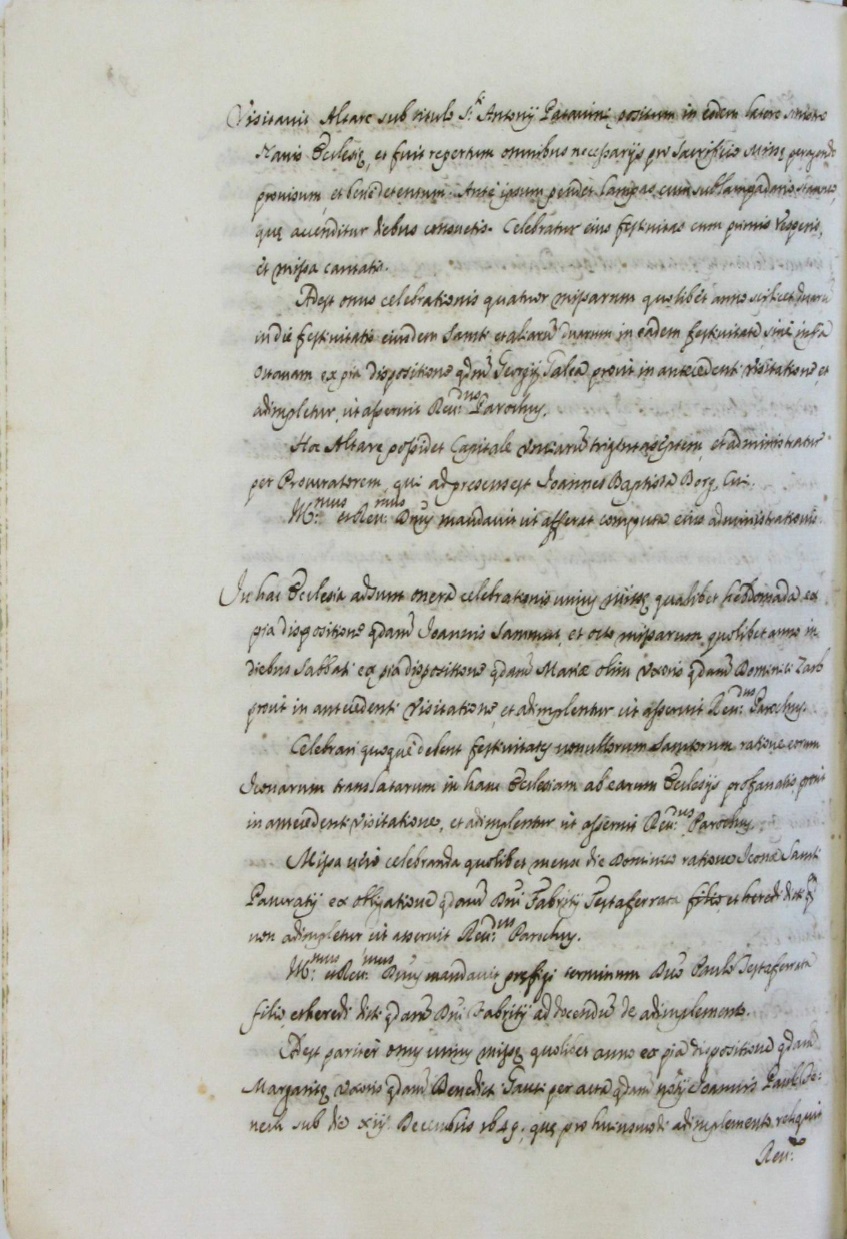 Visitavit Altare sub titulo S.ti Antonij Patavini positum in eodem latere sinistro
Navis Ecclesię, et fuit repertum omnibus necessarijs pro sacrificio missę peragendo
provisum, et bene detentum. Ante ipsum pendet lampas cum sublampadario stanneo,
quę accenditur diebus consuetis. Celebratur eius festivitas cum primis Vesperis,
et missa cantata.
Adest onus celebrationis quatuor missarum quolibet anno scilicet duarū
in die festivitatis eiusdem Sancti et aliarū duarum in eadem festivitate sive infra
octavam ex pia dispositione qdam Georgij Galea prout in antecedenti visitatione, et
adimpletur, ut asseruit Reu:dus Parochus.
Hoc Altare possidet Capitale unciarū triginta septem, et administratur
per Procuratorem, qui ad presens est Joannes Baptista Borg, Cui
Ill:mus et Reu:mus Dnus mandavit ut afferat computa eius administrationis
In hac Ecclesia adsunt onera celebrationis unius missę qualibet hebdomada ex
pia dispositione qdam Joannis Sammut, et octo missarum quolibet anno in
diebus Sabbati ex pia dispositione qdam Mariæ olim Uxoris qdam Dominici Zarb
prout in antecedenti Visitatione, et adimplentur ut asseruit Reu:dus Parochus.
Celebrari quoque debent festivitates nonullorum Sanctorum ratione eorum
Iconarum translatarum in hanc Ecclesiam ab earum Ecclesijs profanatis, prout
in antecedenti visitatione, et adimplentur ut asseruit Reu:dus Parochus.
Missa vero celebranda quolibet mense die Dominico ratione Iconæ Sancti
Pancratij ex obligatione qdam Dni Fabritij Testaferrata et heredi dicti
non adimpletur ut asseruit Reu:dus Parochus.
Ill:mus et Reu:mus Dnus mandavit prefigi terminum Dno Paulo Testaferrata
filio, et heredi dicti qdam Dni Fabritij ad docendū de adimplemento.
Adest pariter onus unius missę quolibet anno ex pia dispositione qdam
Margaritę Uxoris qdam Benedicti Gauci per acta qdam notij Joannis Pauli De:
nech sub die xij Decembris 1649, quę pro huiusmodi adimplemento reliquit
Reu:do